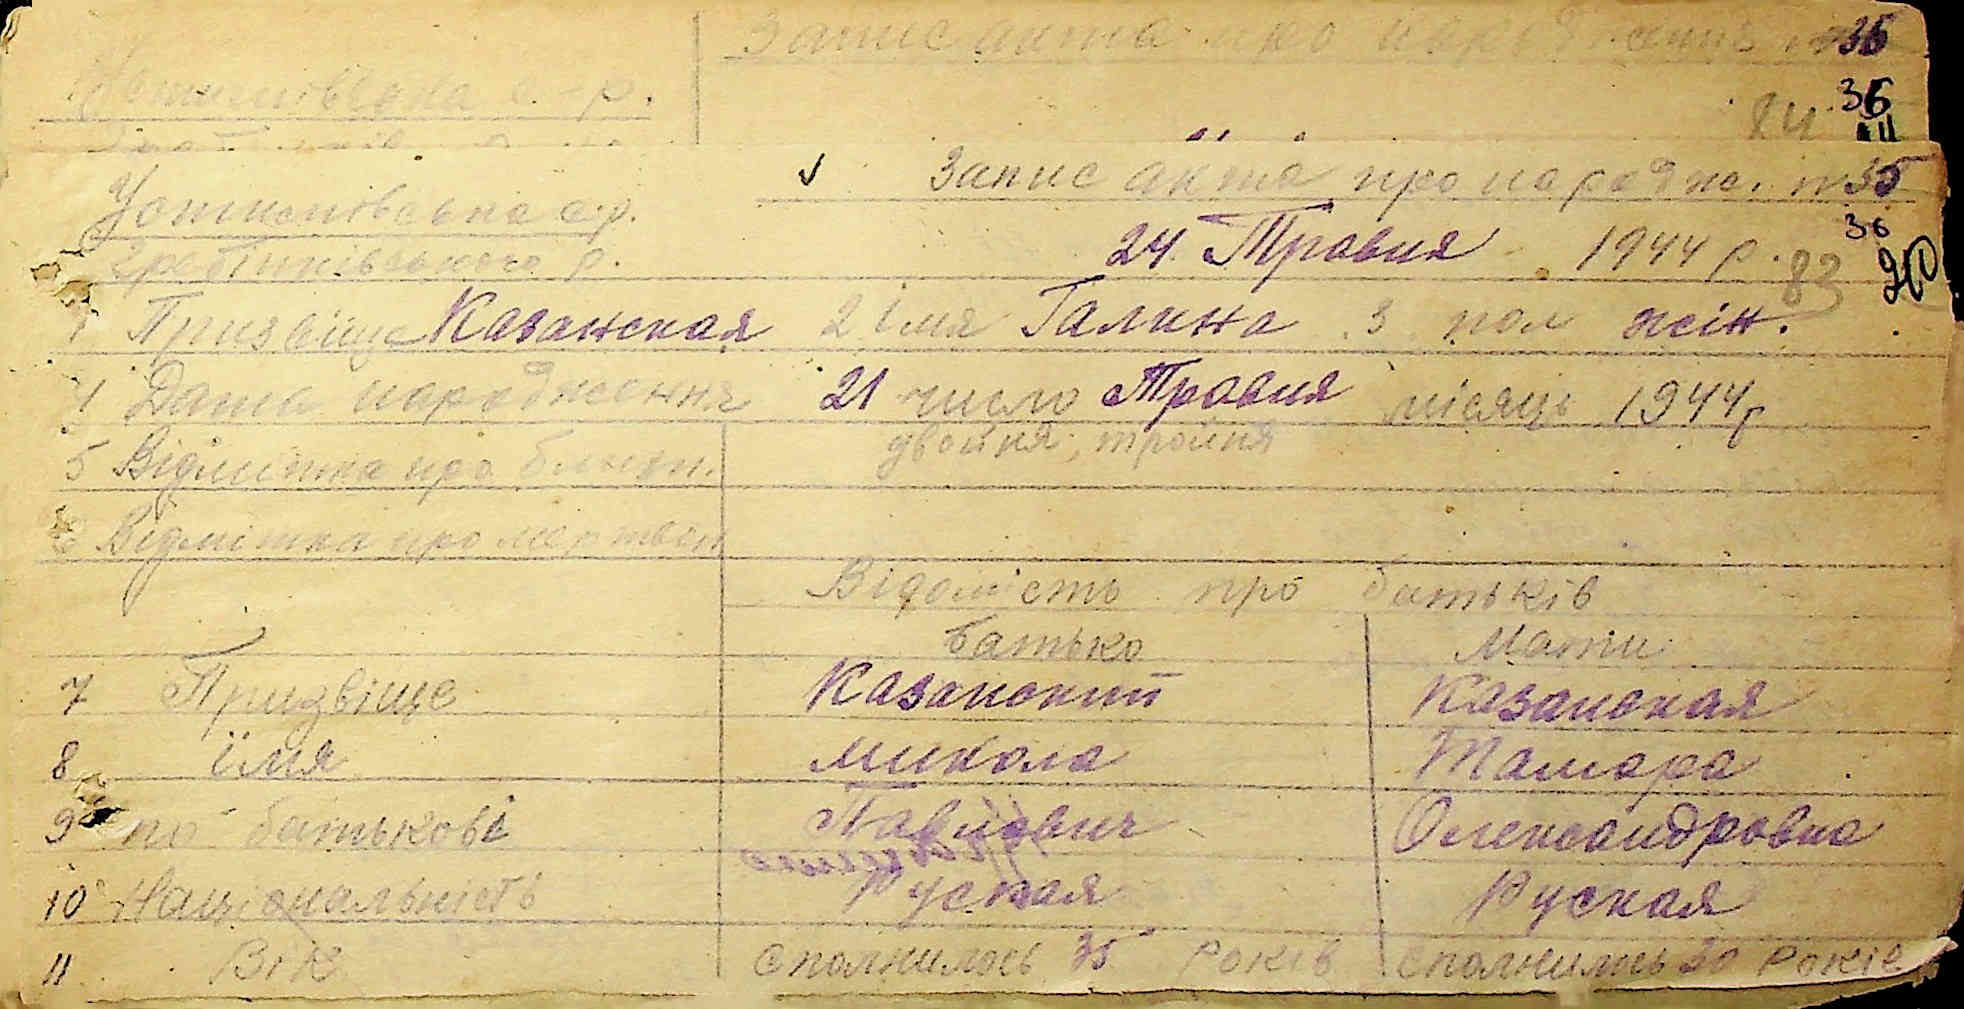 Запис акта про народження № 35
Устимівська с. р.
36
84
Запис акта про народж. № 35
Устимівська с.р.
36
Гребінківського р.
24 Травня 1944 р.
83
1 Призвіще Казанская 2 імя Галина 3 пол жін.
4 Дата народження 21 число Травня місяць 1944 р
5 Відмітка про близн. двойня, тройня
6 Відмітка про мертвон
Відомість про батьків
батько Мати
7 Призвіще Казанский Казанская
8 імя Микола Тамара
9 по батькові Павлович Олександровна
10 Національність Руская Руская
11 Вік Сполнилось 35 років Сполнилось 30 років